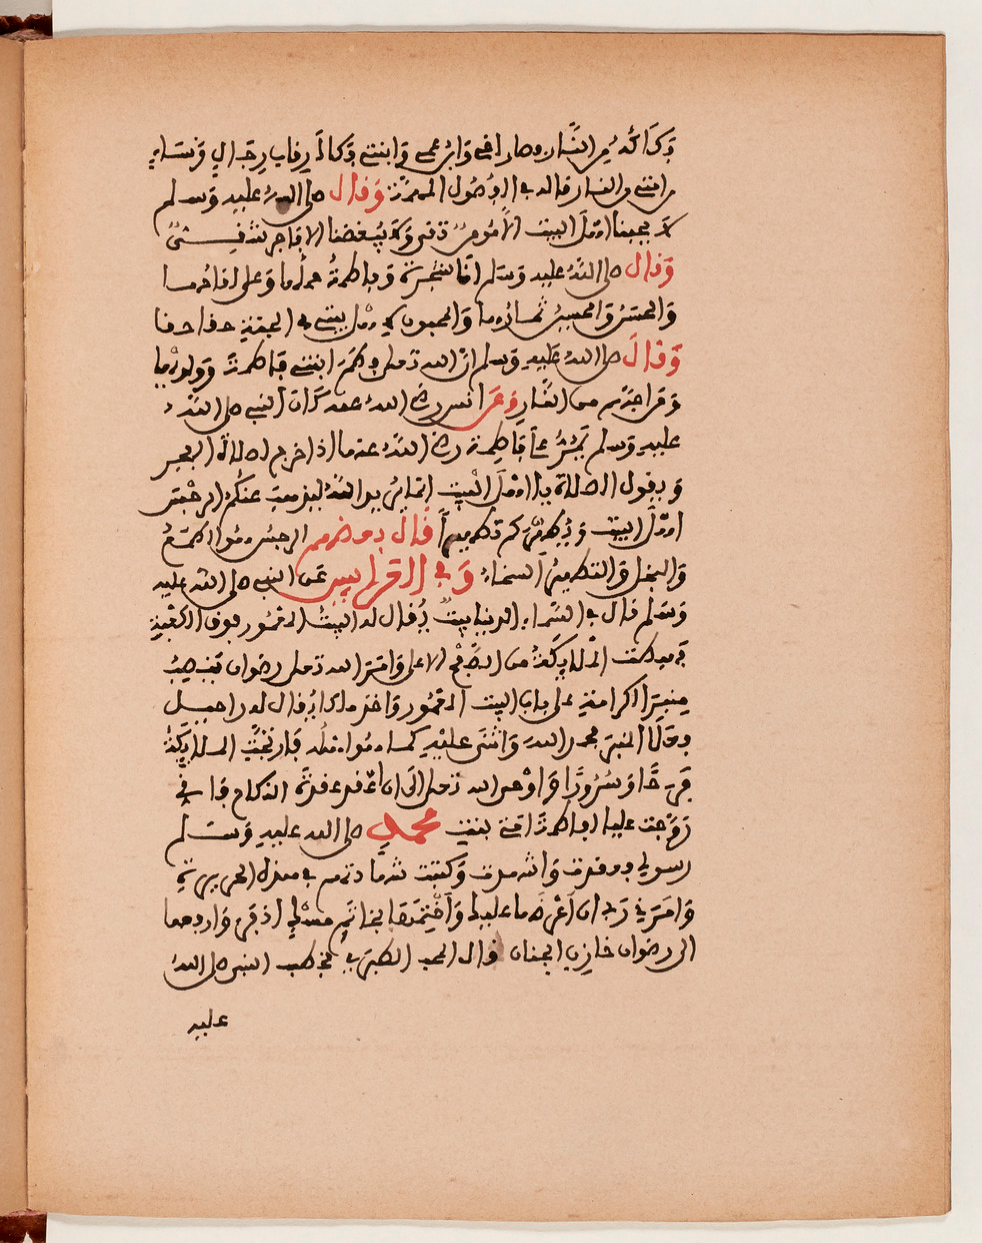 وكاكه من النار وصار اخي وابن عمي وابنتي وكاك رقاب رجال ونساء
من امتي من النار قاله في الاصول المهمة وقال صلى الله عليه وسلم
لا يحبنا اهل البيت الا مومن تقي ولا يبغضنا الا فاجر شقي
وقال صلى الله عليه وسلم انا شجرة وفاطمة حملها وعلي لقاحها
والحسن والحسين ثمارها والمحبون لاهل بيتي في الجنة حقا حقا
وقال صلى الله عليه وسلم ان الله تعلى فطم ابنتي فاطمة وولدها
ومن احبهم من النار وعن انس رضي الله عنه كان النبي صلى الله
عليه وسلم يمر على فاطمة رضي الله عنها اذا خرج لصلاة الفجر
ويقول الصلاة يا اهل البيت انما يريد الله ليذهب عنكم الرجس
اهل البيت ويطهركم تطهيرا قال بعضهم الرجس هو الطمع
والبخل والتطهير السخاء وفي العرايس عن النبي صلى الله عليه
وسلم قال في السماء الدنيا بيت يقال له البيت المعمور فوق الكعبة
فهبطت الملايكة من الصفيح الاعلى وامر الله تعلى رضوان فنصب
منبر الكرامة على باب البيت المعمور واخر ملكا يقال له راحيل
فعلا المنبر فحمد الله واثنى عليه كما هو اهله فارتجت الملايكة
فرحا وسرورا واوحى الله تعلى الي ان اعقد عقدة النكاح فاني
زوجت عليا فاطمة امتي بنت محمد صلى الله عليه وسلم
رسولي فعقدت واشهدت وكتبت شهادتهم في هذه الحريرة
وامرني ربي ان اعرضها عليك واختمها بخاتم مسك اذفر وادفعها
الى رضوان خازن الجنان قال المحب الطبري فخطب النبي صلى الله
عليه